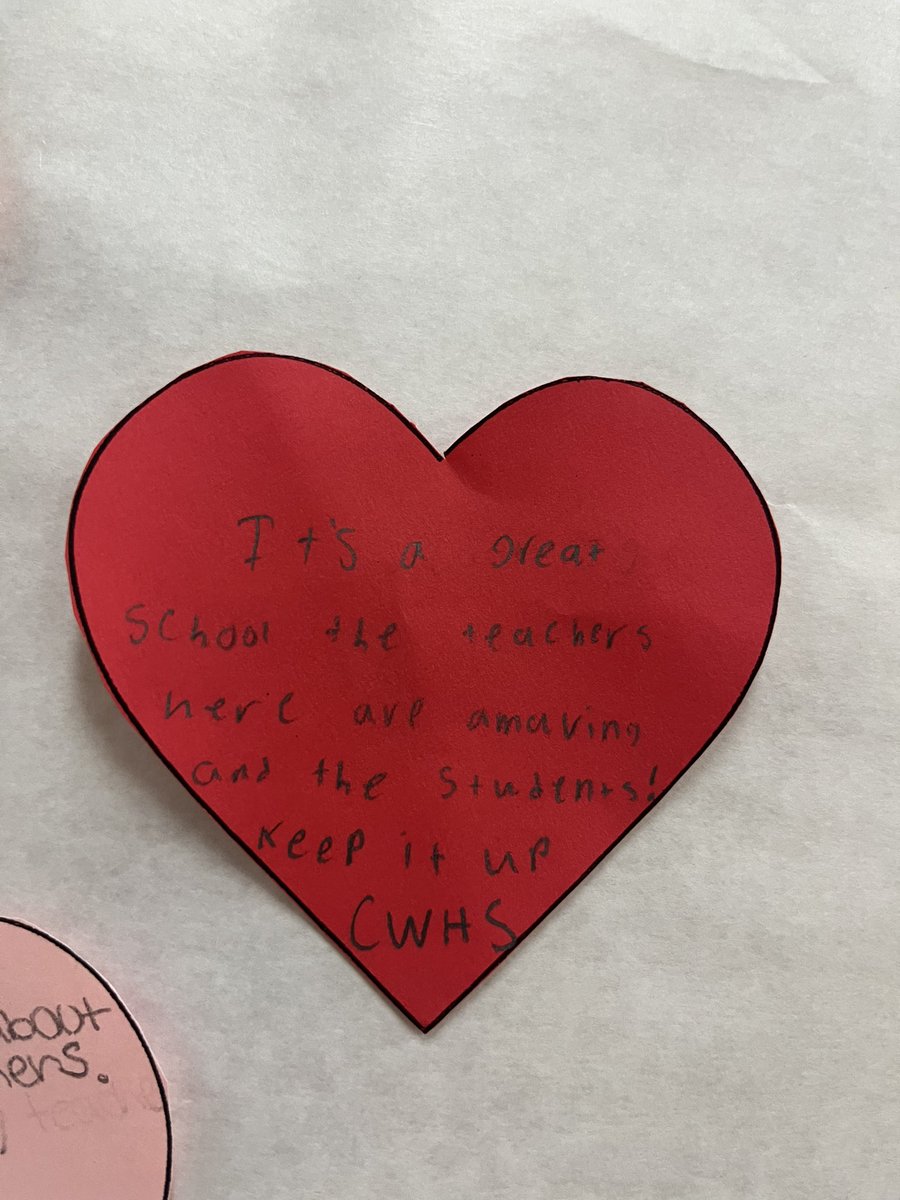 It's a great
School the teachers
here are amazing
and the students!
Keep it up
CWHS
about
hers.
teache